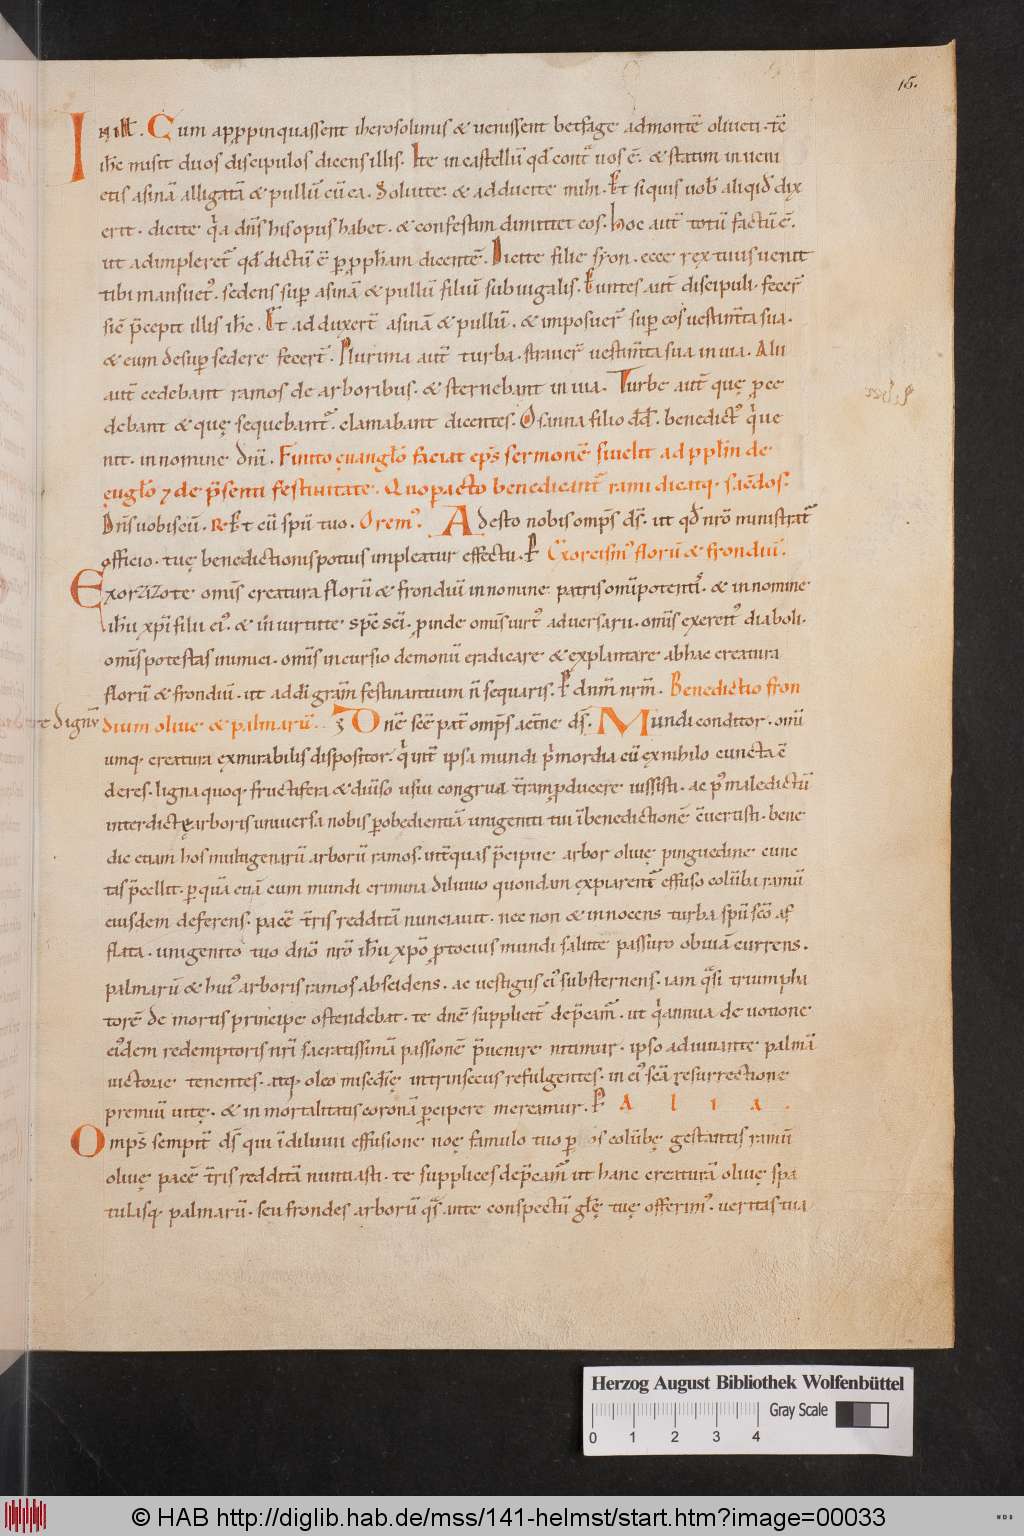 15.
IN illˉ. Cum appropinquassent iherosolimis & uenissent betfage ad montē oliueti. tc̄
ih̄c misit duos discipulos dicens illis. Ite in castellū qd̄ contᵃ uos ē. & statim inueni
etis asinā alligatā & pullū cū ea. Soluite. & adducite mihi. Et siquis uob̄ aliqid̄ dix
erit. dicite qia dn̄s his opus habet. & confestim dimittet eos. Hoc aut̄ totū factū ē.
ut adimpleret̄ qd̄ dictū ē p pph̄am dicentē. Dicite filie syon. ecce rex tuus uenit
tibi mansuet᾿. sedens sup asinā & pullū filiū subiugalis. Euntes aut̄ discipuli. fecer̄
sic̄ p̄cepit illis ih̄c. Et adduxer̄t asinā & pullū. & imposuer̄ sup eos uestim̄ta sua.
& eum desup sedere fecer̄t. Plurima aut̄ turba. strauer̄ uestim̄ta sua in uia. Alii
aut̄ cedebant ramos de arboribus. & sternebant in uia. Turbe aut̄ quę pce
debant & quę sequebant̄. clamabant dicentes. Osanna filio dd̄. benedict᾿ qi ue
nit. in nomine dn̄i. Finito ęuangł̄o faciat ep̄s sermonē si uelit ad pplm̄ de
ęugł̄o ⁊ de p̄senti festiuitate. Quo pacto benedicant̄ rami dicatq. sac̄dos.
Dn̄s uobiscū. R. Et cū spū tuo. Orem᾿. Adesto nobis omps̄ ds̄. ut qd̄ nr̄o ministrat̄
officio. tuę benedictionis potius impleatur effectu. P Exorcism᾿ florū & frondiū.
Exorzizo te omīs creatura florū & frondiū in nomine patris omīpotenti᾿. & in nomine
ih̄u xp̄i filii ei᾿. & in uirtute sp̄c sc̄i. proinde omīs uirt᾿ aduersarii. omīs exercit᾿ diaboli.
omīs potestas inimici. omīs incursio demonū eradicare & explantare ab hac creatura
florū & frondiū. ut ad dī grām festinantium n̄ sequaris. P dnm̄ nrm̄. Benedictio fron
re dignū
dium oliue & palmarū. Dn̄e sc̄e pat̄ omps̄ aet̄ne ds̄. Mundi conditor. omī
umq. creatura ex mirabilis dispositor. qi int̄ ipsa mundi pimordia cū ex nihilo cuncta c̄
deres. ligna quoq. fructifera & diūso usui congrua t̄ram pducere iussisti. ac p᾿ maledictū
interdictę arboris uniuersa nobis p obedientiā unigeniti tui ī benedictionē c̄uertisti. bene
dic etiam hos multigenarū arborū ramos. int̄ quas p̄cipue arbor oliuę pinguedine cunc
tis p̄cellit. p quā etiā cum mundi crimina diluuio quondam expiarent̄ effuso colūba ramū
eiusdem deferens. pacē t̄ris redditā nunciauit. nec non & innocens turba spū sc̄o af
flata. unigenito tuo dn̄o nr̄o ih̄u xp̄o p tocius mundi salute passuro obuiā currens.
palmarū & hui᾿ arboris ramos abscidens. ac uestigiis ei᾿ substernens. iam qᵃsi triumpha
torē de mortis principe ostendebat. te dn̄e supplicit̄ dep̄cam᾿. ut qi annua deuotione
ei᾿dem redemptoris nr̄i sacratissimā passionē p̄uenire nitimur. ipso adiuuante palmā
uictorie tenentes. atq. oleo mis̄die intrinsecus refulgentes. in ei᾿ sc̄a resurrectione
premiū uitę. & inmortalitatis coronā pcipere mereamur. P A L I A.
Omps̄ sempit̄ ds̄ qui ī diluuii effusione noę famulo tuo p os colūbę gestantis ramū
oliuę pacē t̄ris redditā nuntiasti. te supplices dep̄cam᾿ ut hanc creaturā oliuę spa
tulasq. palmarū. seu frondes arborū qᵃs ante conspectū gł̄ę tuę offerim᾿. ueritas tua
Herzog August Bibliothek Wolfenbüttel
Gray Scale
0 1 2 3 4
© HAB http://diglib.hab.de/mss/141-helmst/start.htm?image=00033